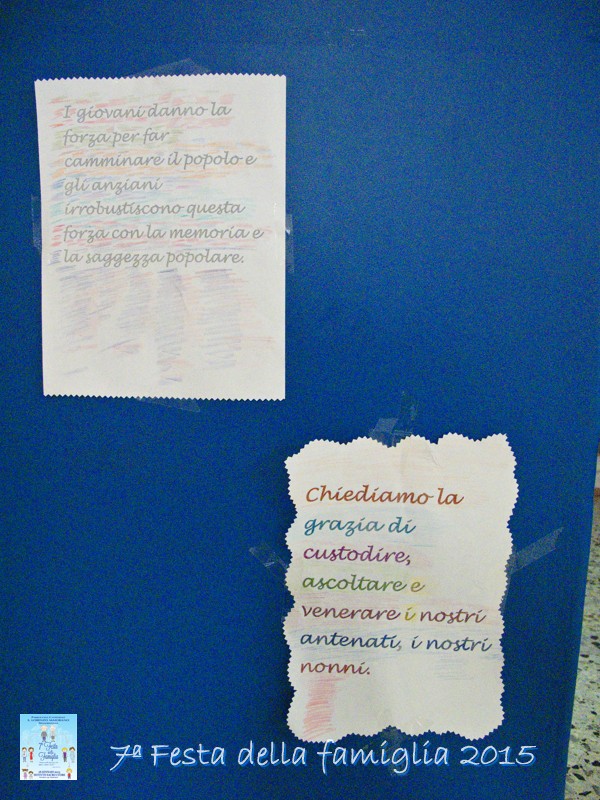 I giovani danno la
forza per far
camminare il popolo e
gli anziani
irrobustiscono questa
forza con la memoria e
la saggezza popolare.
Chiediamo la
grazia di
custodire,
ascoltare e
venerare i nostri
antenati, i nostri
nonni.
7ª Festa
della
Famiglia
7ª Festa della famiglia 2015